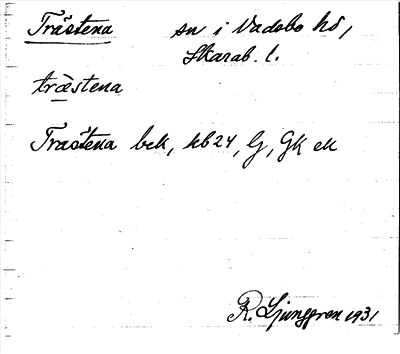 Trästena sn i Vadsbo hd,
Skarab. l.
træstena
Trästena bek, kb 24, G, GK ek
R. Ljunggren 1931